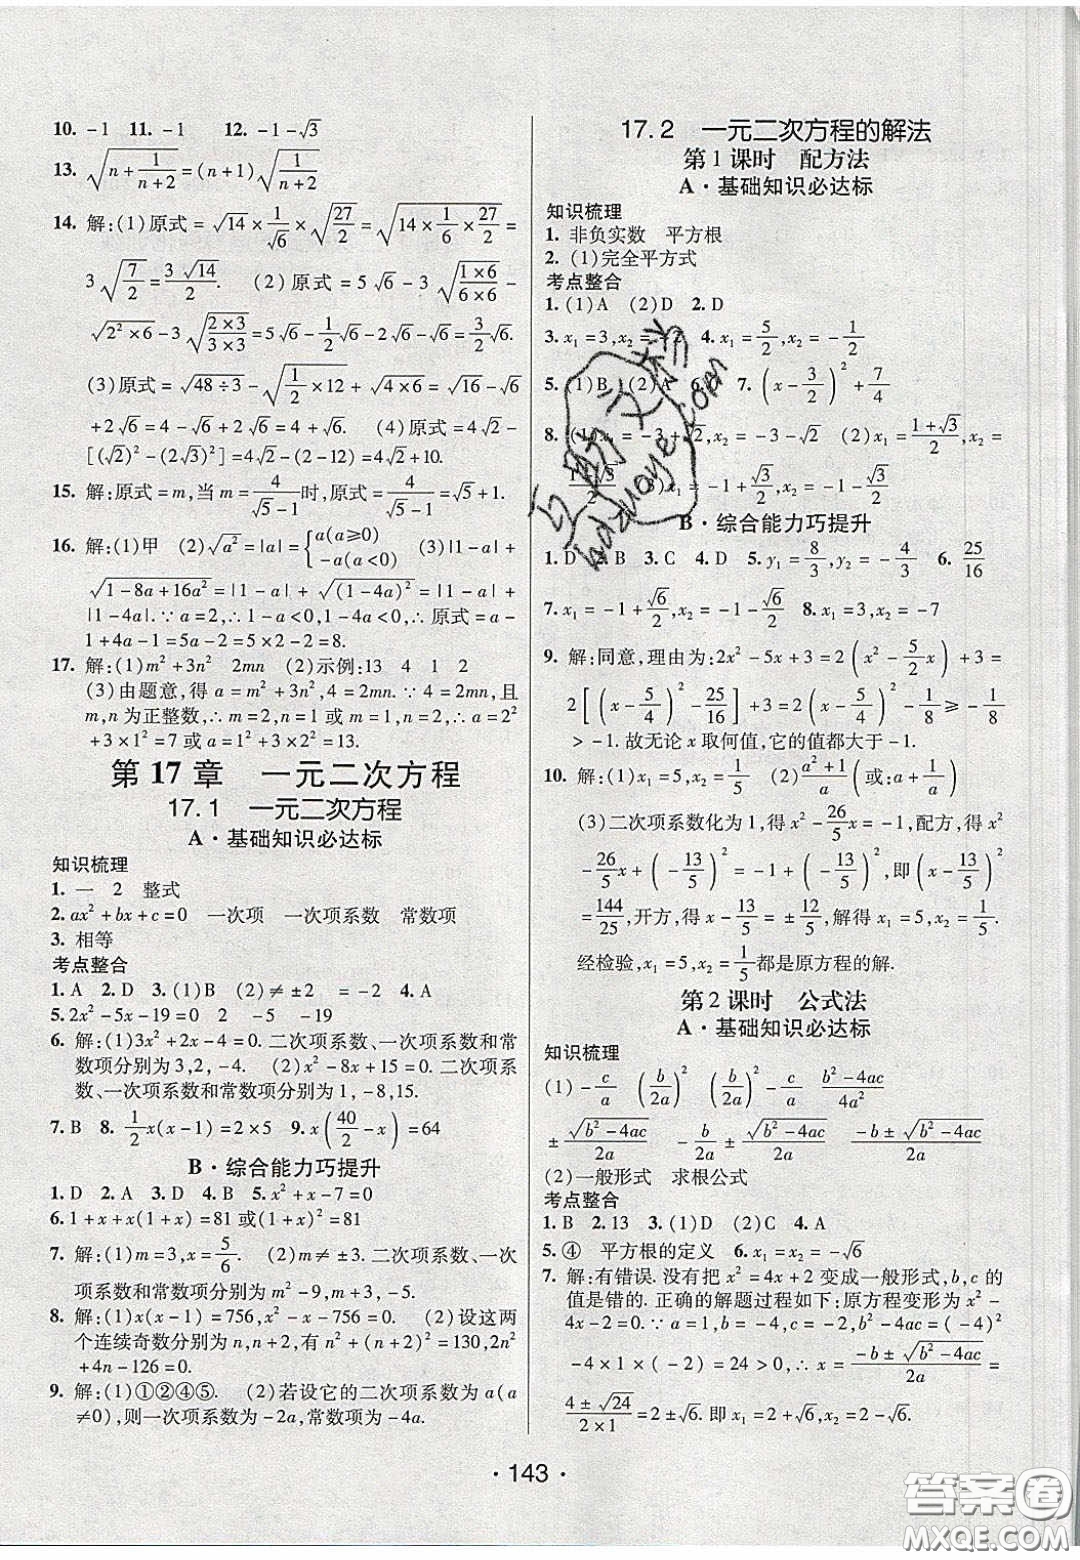 10. -1　11. -1　12. -1-√3
13. √(n+1/(n+2))=(n+1)√(1/(n+2))
14. 解:(1)原式=√14×1/√6×√(27/2)=√(14×1/6×27/2)=
3√(7/2)=3√14/2.　(2)原式=5√6-√((1×6)/(6×6))-
√(2²×6)-3√((2×3)/(3×3))=5√6-1/6√6-2√6-√6=3/2√6.
(3)原式=√(48÷3)-√(1/2×12)+√(4×6)=√16-√6
+2√6=4-√6+2√6=4+√6.　(4)原式=4√2-
[(√2)²-(2√3)²]=4√2-(2-12)=4√2+10.
15. 解:原式=m,当m=4/(√5-1)时,原式=4/(√5-1)=√5+1.
16. 解:(1)甲　(2)√a²=|a|={a(a≥0) -a(a<0)　(3)|1-a|+
√(1-8a+16a²)=|1-a|+√(1-4a)²=|1-a|+
|1-4a|.∵a=2,∴1-a<0,1-4a<0,∴原式=a-
1+4a-1=5a-2=5×2-2=8.
17. 解:(1)m²+3n²　2mn　(2)示例:13　4　1　2
(3)由题意,得a=m²+3n²,4=2mn.∵4=2mn,且
m,n为正整数,∴m=2,n=1或m=1,n=2.∴a=2²
+3×1²=7或a=1²+3×2²=13.
第17章　一元二次方程
17.1　一元二次方程
A·基础知识必达标
知识梳理
1. 一　2　整式
2. ax²+bx+c=0　一次项　一次项系数　常数项
3. 相等
考点整合
1. A　2. D　3. (1)B　(2)≠±2　=2　4. A
5. 2x²-5x-19=0　2　-5　-19
6. 解:(1)3x²+2x-4=0.二次项系数、一次项系数和常
数项分别为3,2,-4.　(2)x²-8x+15=0.二次项系
数、一次项系数和常数项分别为1,-8,15.
7. B　8. 1/2x(x-1)=2×5　9. x(40/2-x)=64
B·综合能力巧提升
1. D　2. A　3. D　4. B　5. x²+x-7=0
6. 1+x+x(1+x)=81或(1+x)²=81
7. 解:(1)m=3,x=5/6.　(2)m≠±3.二次项系数、一次
项系数和常数项分别为m²-9,m+3,-5.
8. 解:(1)x(x-1)=756,x²-x-756=0.　(2)设这两
个连续奇数分别为n,n+2,有n²+(n+2)²=130,2n²
+4n-126=0.
9. 解:(1)①②④⑤.　(2)若设它的二次项系数为a(a
≠0),则一次项系数为-2a,常数项为-4a.
17.2　一元二次方程的解法
第1课时　配方法
A·基础知识必达标
知识梳理
1. 非负实数　平方根
2. (1)完全平方式
考点整合
1. (1)A　(2)D　2. D
3. x₁=3,x₂=-2　4. x₁=5/2,x₂=-1/2
5. (1)B　(2)A　6.　7. (x-3/2)²+7/4
8. (1)x₁=-3+√2,x₂=-3-√2　(2)x₁=(1+√3)/2,x₂=
(1-√3)/2　(3)x₁=-1+√5/2,x₂=-1-√5/2
B·综合能力巧提升
1. D　2. B　3. C　4. D　5. y₁=8/3,y₂=-4/3　6. 25/16
7. x₁=-1+√6/2,x₂=-1-√6/2　8. x₁=3,x₂=-7
9. 解:同意,理由为:2x²-5x+3=2(x²-5/2x)+3=
2[(x-5/4)²-25/16]+3=2(x-5/4)²-1/8≥-1/8
>-1.故无论x取何值,它的值都大于-1.
10. 解:(1)x₁=5,x₂=1/5　(2)(a²+1)/a(或:a+1/a)
(3)二次项系数化为1,得x²-26/5x=-1,配方,得x²
-26/5x+(-13/5)²=-1+(-13/5)²,即(x-13/5)²
=144/25,开方,得x-13/5=±12/5,解得x₁=5,x₂=1/5.
经检验,x₁=5,x₂=1/5都是原方程的解.
第2课时　公式法
A·基础知识必达标
知识梳理
(1)-c/a　(b/2a)²　(b/2a)²　(b²-4ac)/4a²
±√(b²-4ac)/2a　-b/2a±√(b²-4ac)/2a　(-b±√(b²-4ac))/2a
(2)一般形式　求根公式
考点整合
1. B　2. 13　3. (1)D　(2)C　4. A
5. ④　平方根的定义　6. x₁=x₂=-√6
7. 解:有错误.没有把x²=4x+2变成一般形式,b,c的
值是错的.正确的解题过程如下:原方程变形为x²-
4x-2=0.∵a=1,b=-4,c=-2,b²-4ac=(-4)²
-4×1×(-2)=24>0,∴x=(-b±√(b²-4ac))/2a=
(4±√24)/(2×1)=2±√6.即x₁=2+√6,x₂=2-√6.
·143·
答案圈
MXQE.COM